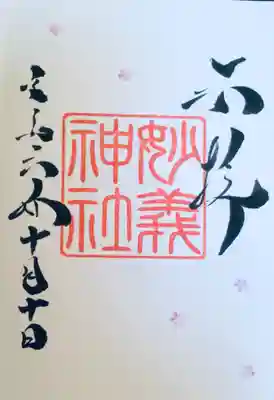 奉拝
妙義
神社
令和六年十月十日